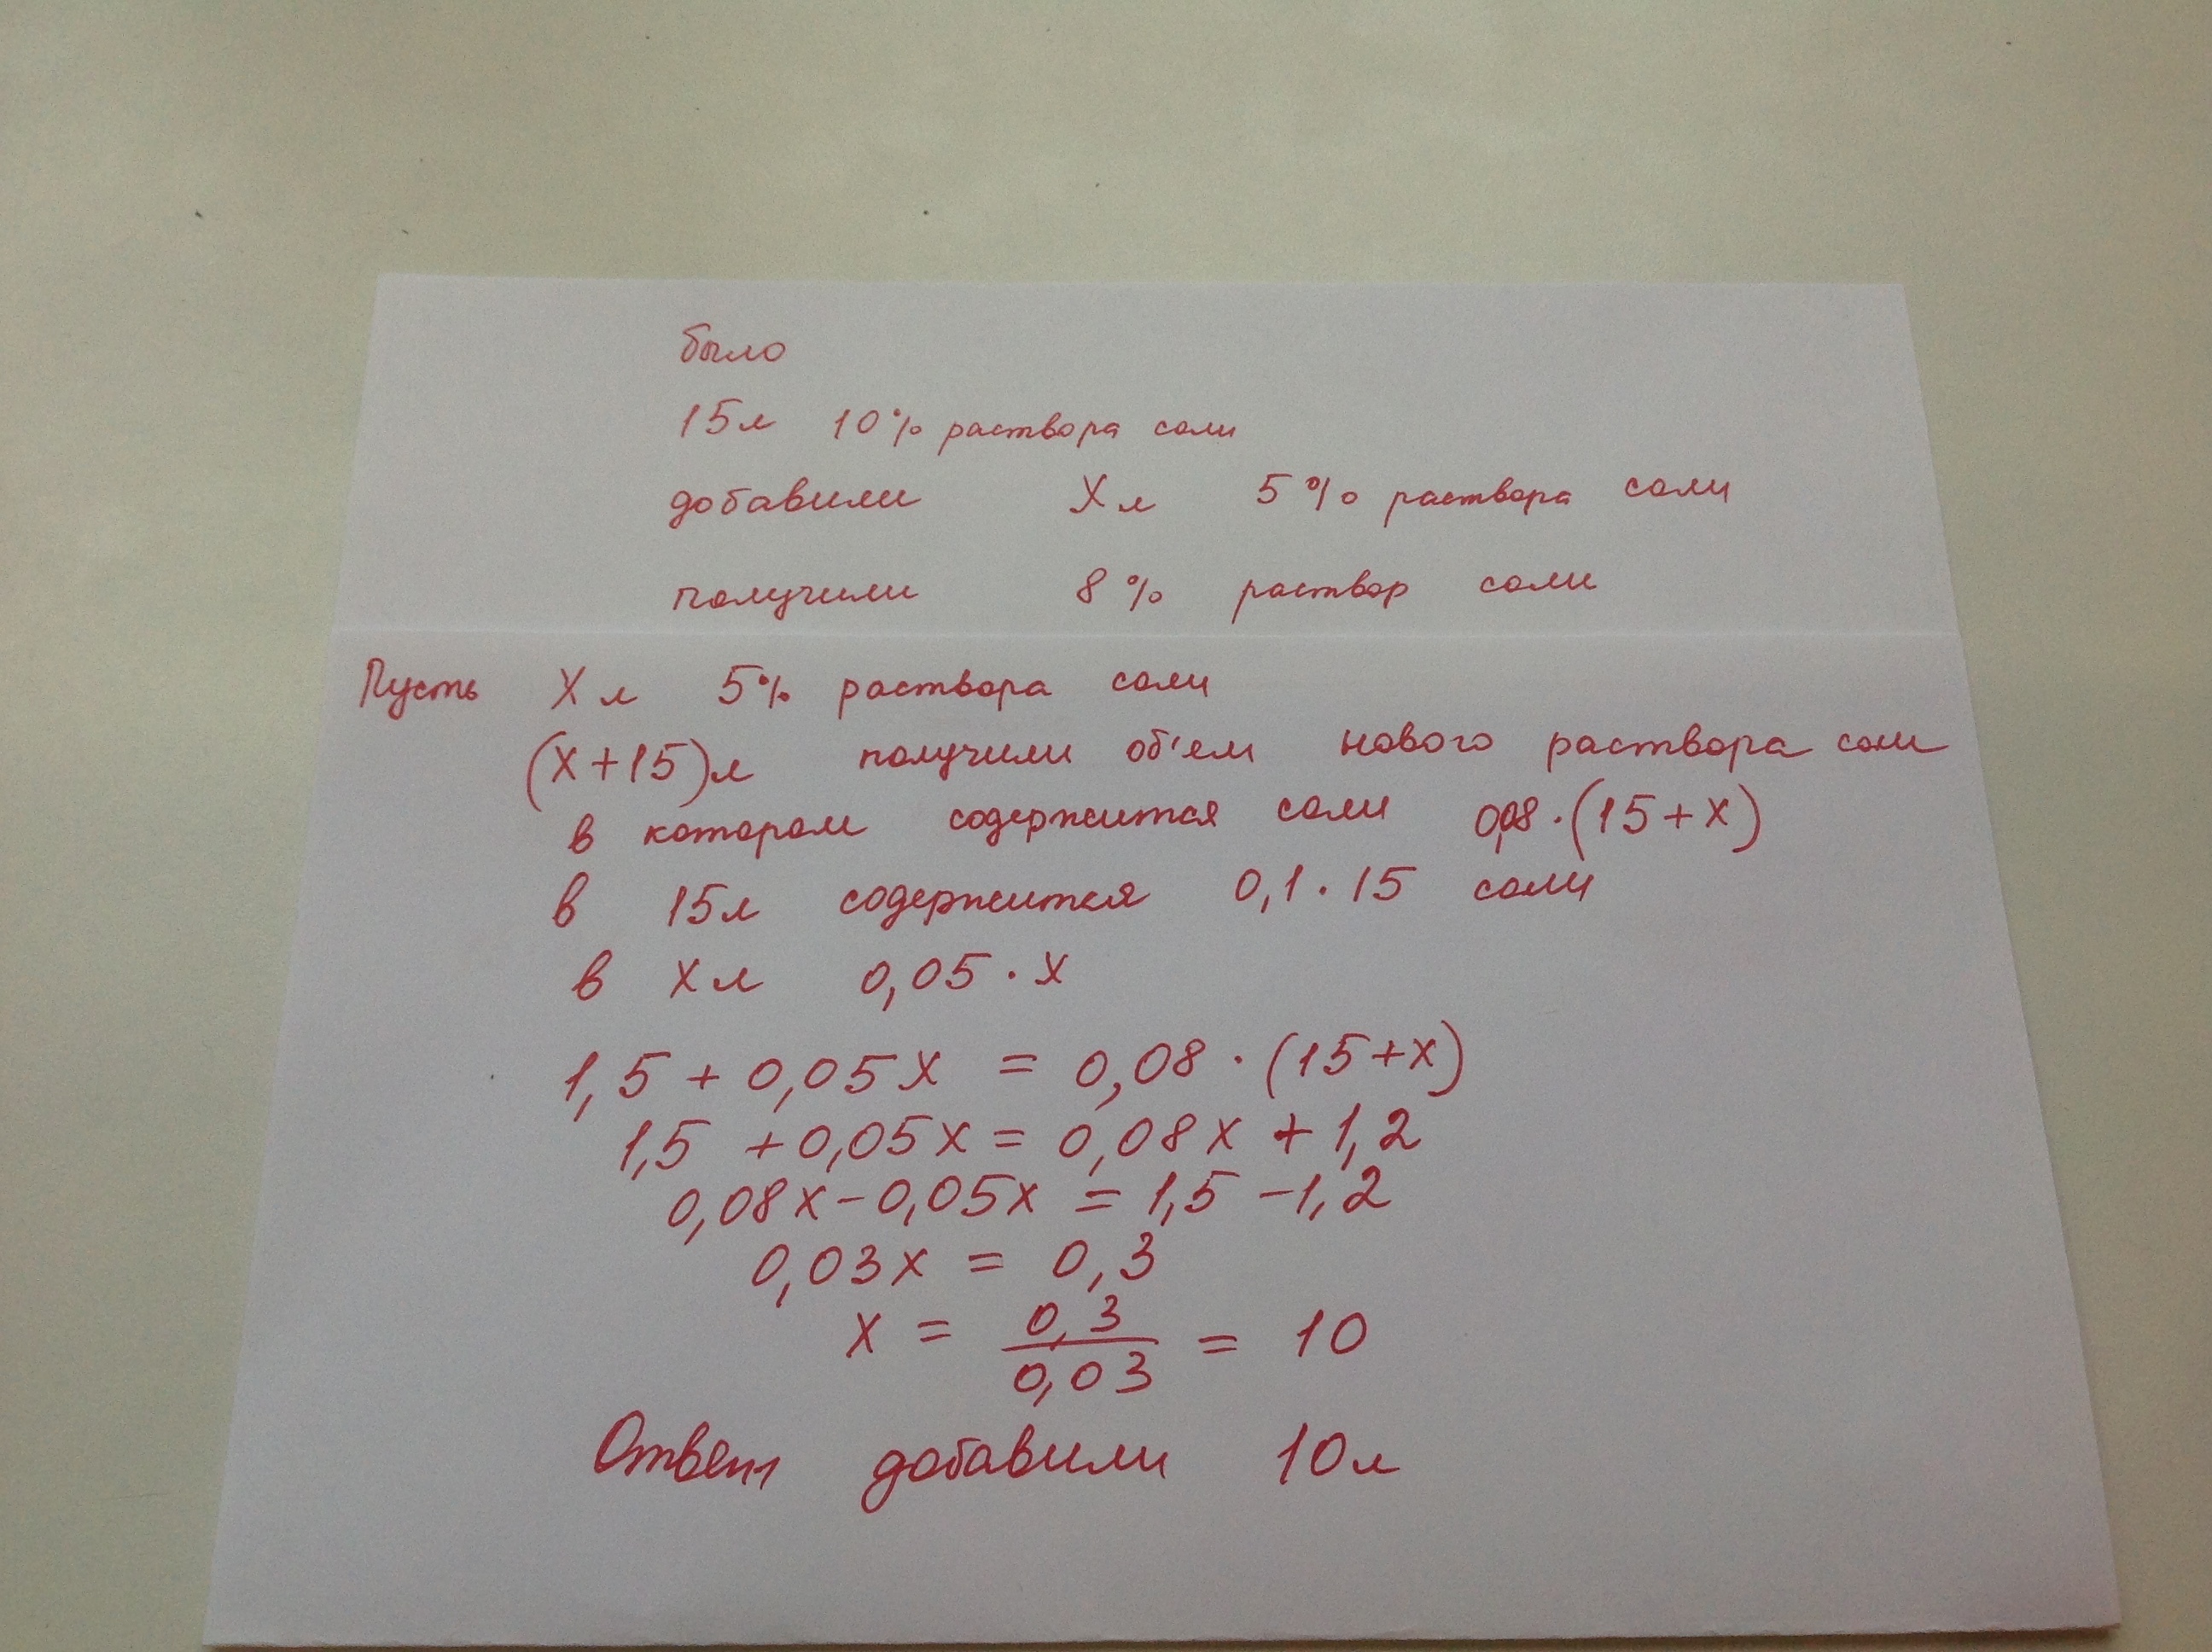 было
15л 10% раствора соли
добавили Xл 5% раствора соли
получили 8% раствор соли
Пусть Xл 5% раствора соли
(X+15)л получили об'ем нового раствора соли
в котором содержится соли 0,08·(15+X)
в 15л содержится 0,1·15 соли
в Xл 0,05·X
1,5+0,05X = 0,08·(15+X)
1,5+0,05X = 0,08X+1,2
0,08X-0,05X = 1,5-1,2
0,03X = 0,3
X = 0,3/0,03 = 10
Ответ добавили 10л